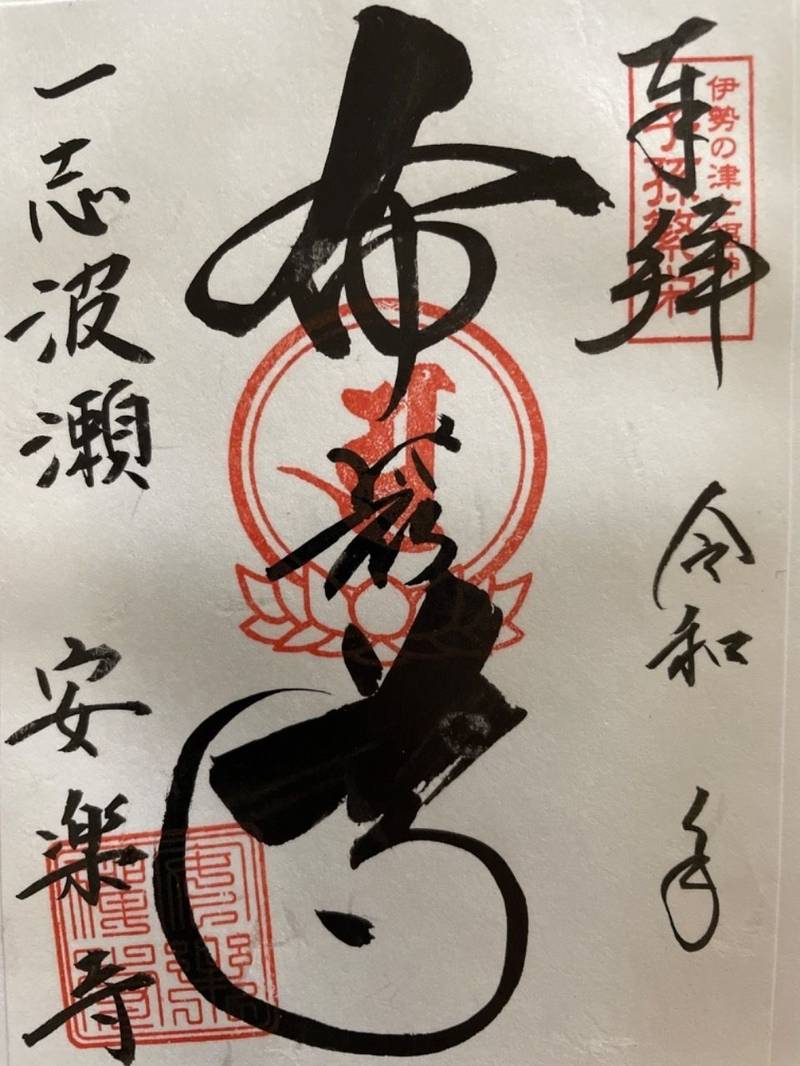 奉拝
伊勢の津七福神
子孫繁栄
令和 年
布袋尊
一志波瀬 安楽寺